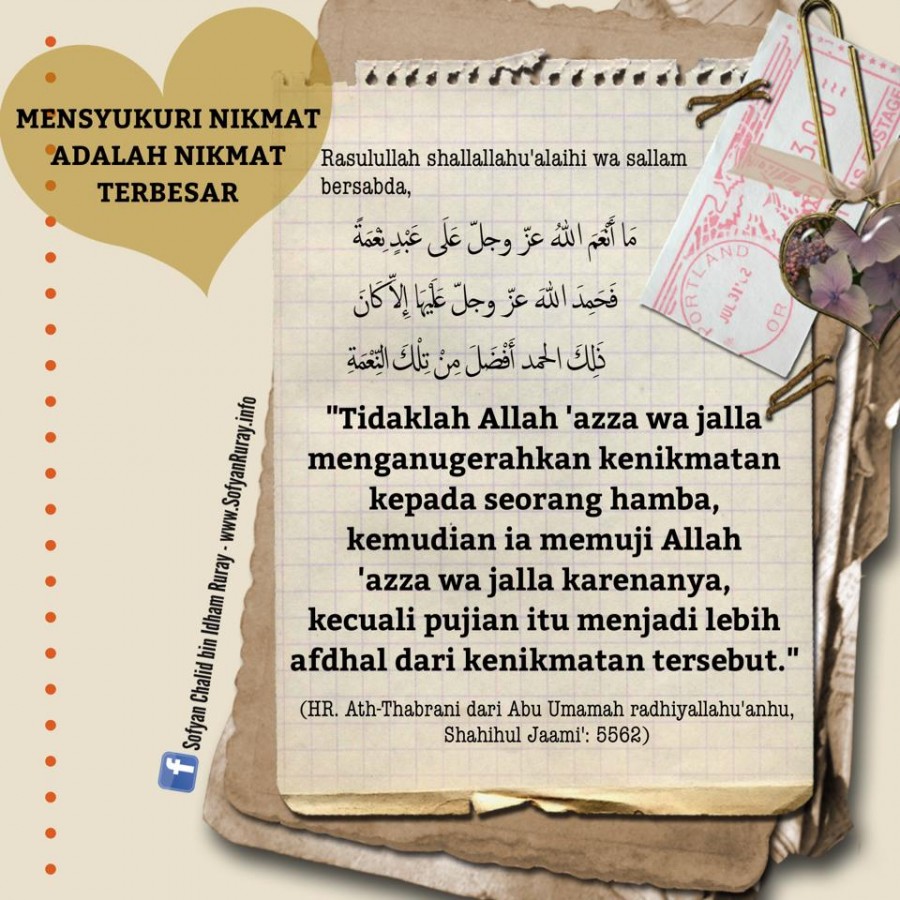 MENSYUKURI NIKMAT
ADALAH NIKMAT
TERBESAR
Rasulullah shallallahu'alaihi wa sallam
bersabda,
مَا أَنْعَمَ اللهُ عزّ وجلّ عَلَى عَبْدٍ نِعْمَةً
فَحَمِدَ اللهَ عزّ وجلّ عَلَيْهَا إِلاَّ كَانَ
ذَلِكَ الحمد أَفْضَلَ مِنْ تِلْكَ النِّعْمَةِ
"Tidaklah Allah 'azza wa jalla
menganugerahkan kenikmatan
kepada seorang hamba,
kemudian ia memuji Allah
'azza wa jalla karenanya,
kecuali pujian itu menjadi lebih
afdhal dari kenikmatan tersebut."
(HR. Ath-Thabrani dari Abu Umamah radhiyallahu'anhu,
Shahihul Jaami': 5562)
f Sofyan Chalid bin Idham Ruray - www.SofyanRuray.info
PORTLAND
OR
POSTAGE